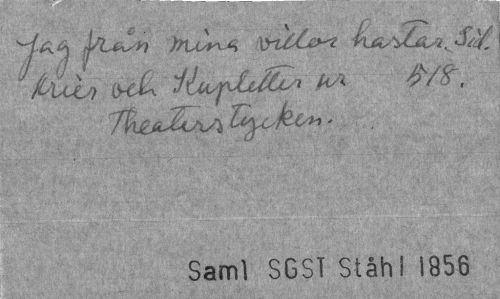 Jag från mina villor hastar. Sid.
Arier och Kupletter ur 518.
Theaterstycken.
Saml SGST Ståhl 1856